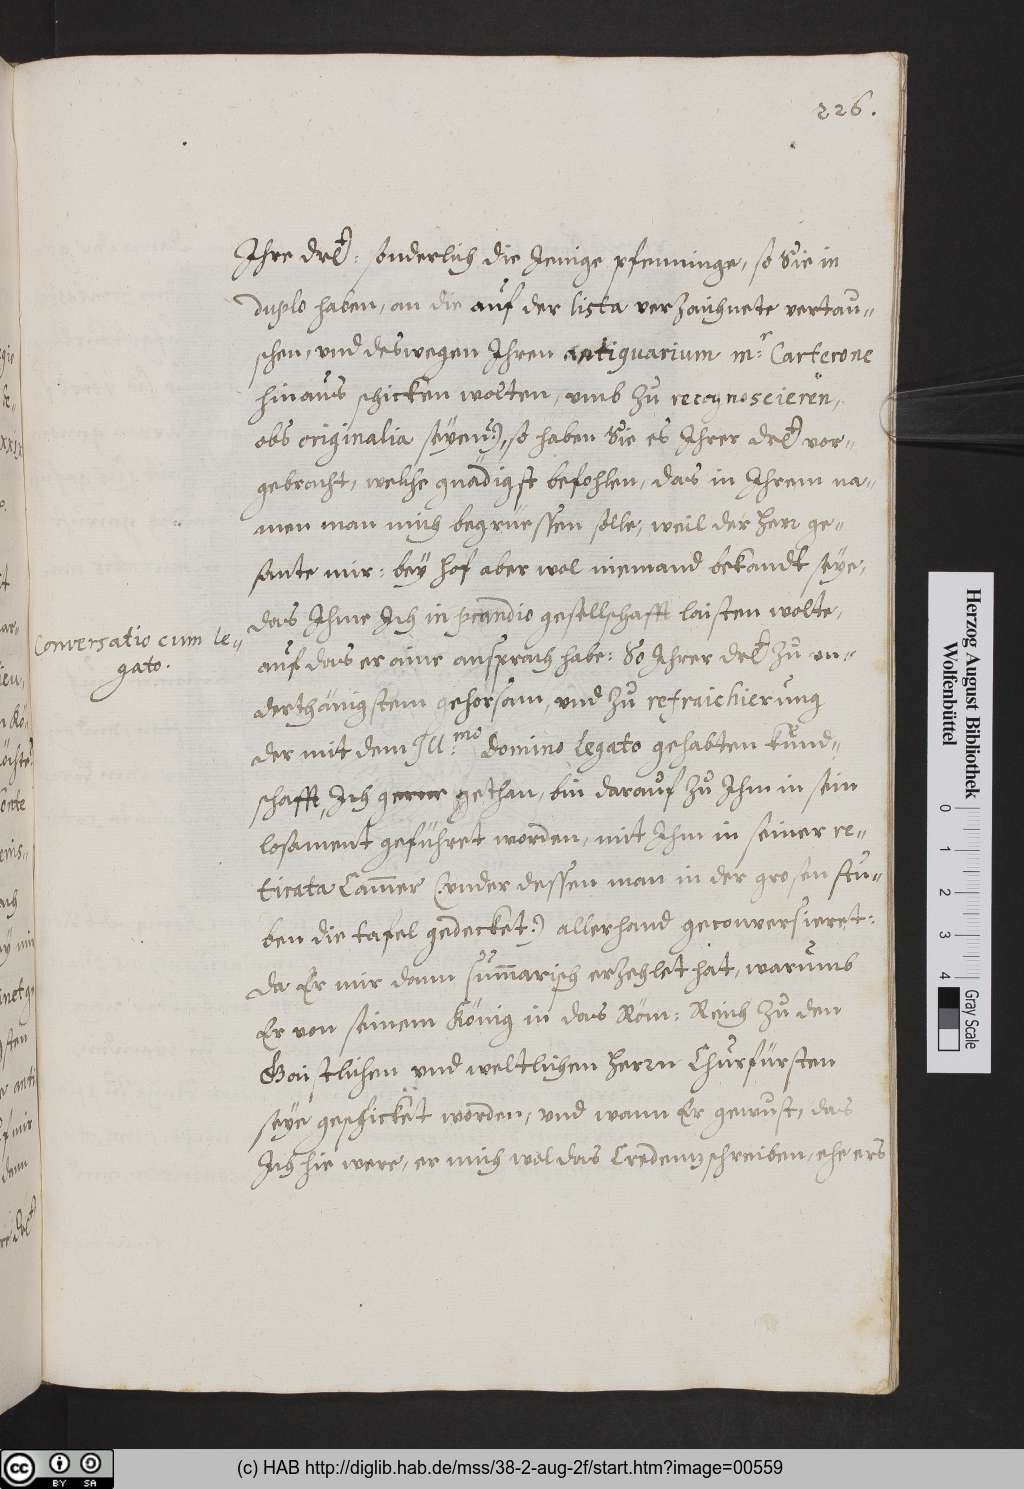 226.
Ihre drl: sonderlich die Jenige pfenninge, so Sie in
duplo haben, an die auf der lista verzaichnete vertau-
schen, und deswegen Ihren antiquarium mr. Carterone
hinaus schicken wolten, umb zu recognoscieren,
obs originalia seyen:), so haben Sie es Ihrer drl vor-
gebracht, welche gnädigst befohlen, das in Ihrem na-
men man mich begrüessen solle, weil der herr ge-
sante mir: bey hof aber wol niemand bekandt seye,
das Ihme Ich in prandio gesellschafft laisten wolte,
Conversatio cum le-
gato.
auf das er aine ansprach habe: So Ihrer drl zu un-
derthänigstem gehorsam, und zu refraichierung
der mit dem Ill.mo Domino Legato gehabten kund-
schafft, Ich gerne gethan, bin darauf zu Ihm in sein
losament geführet worden, mit Ihm in seiner re-
ticata Cammer (under dessen man in der grosen stu-
ben die tafel gedecket:) allerhand geconversieret:
da Er mir dann summarisch erzehlet hat, warumb
Er von seinem König in das Röm: Reich zu den
Gaistlichen und weltlichen herrn Churfürsten
seye geschicket worden, und wann Er gewust, das
Ich hie were, er mich wol das Credenzschreiben, ehe ers
Herzog August Bibliothek
Wolfenbüttel
0 1 2 3 4
Gray Scale
cc BY SA
(c) HAB http://diglib.hab.de/mss/38-2-aug-2f/start.htm?image=00559